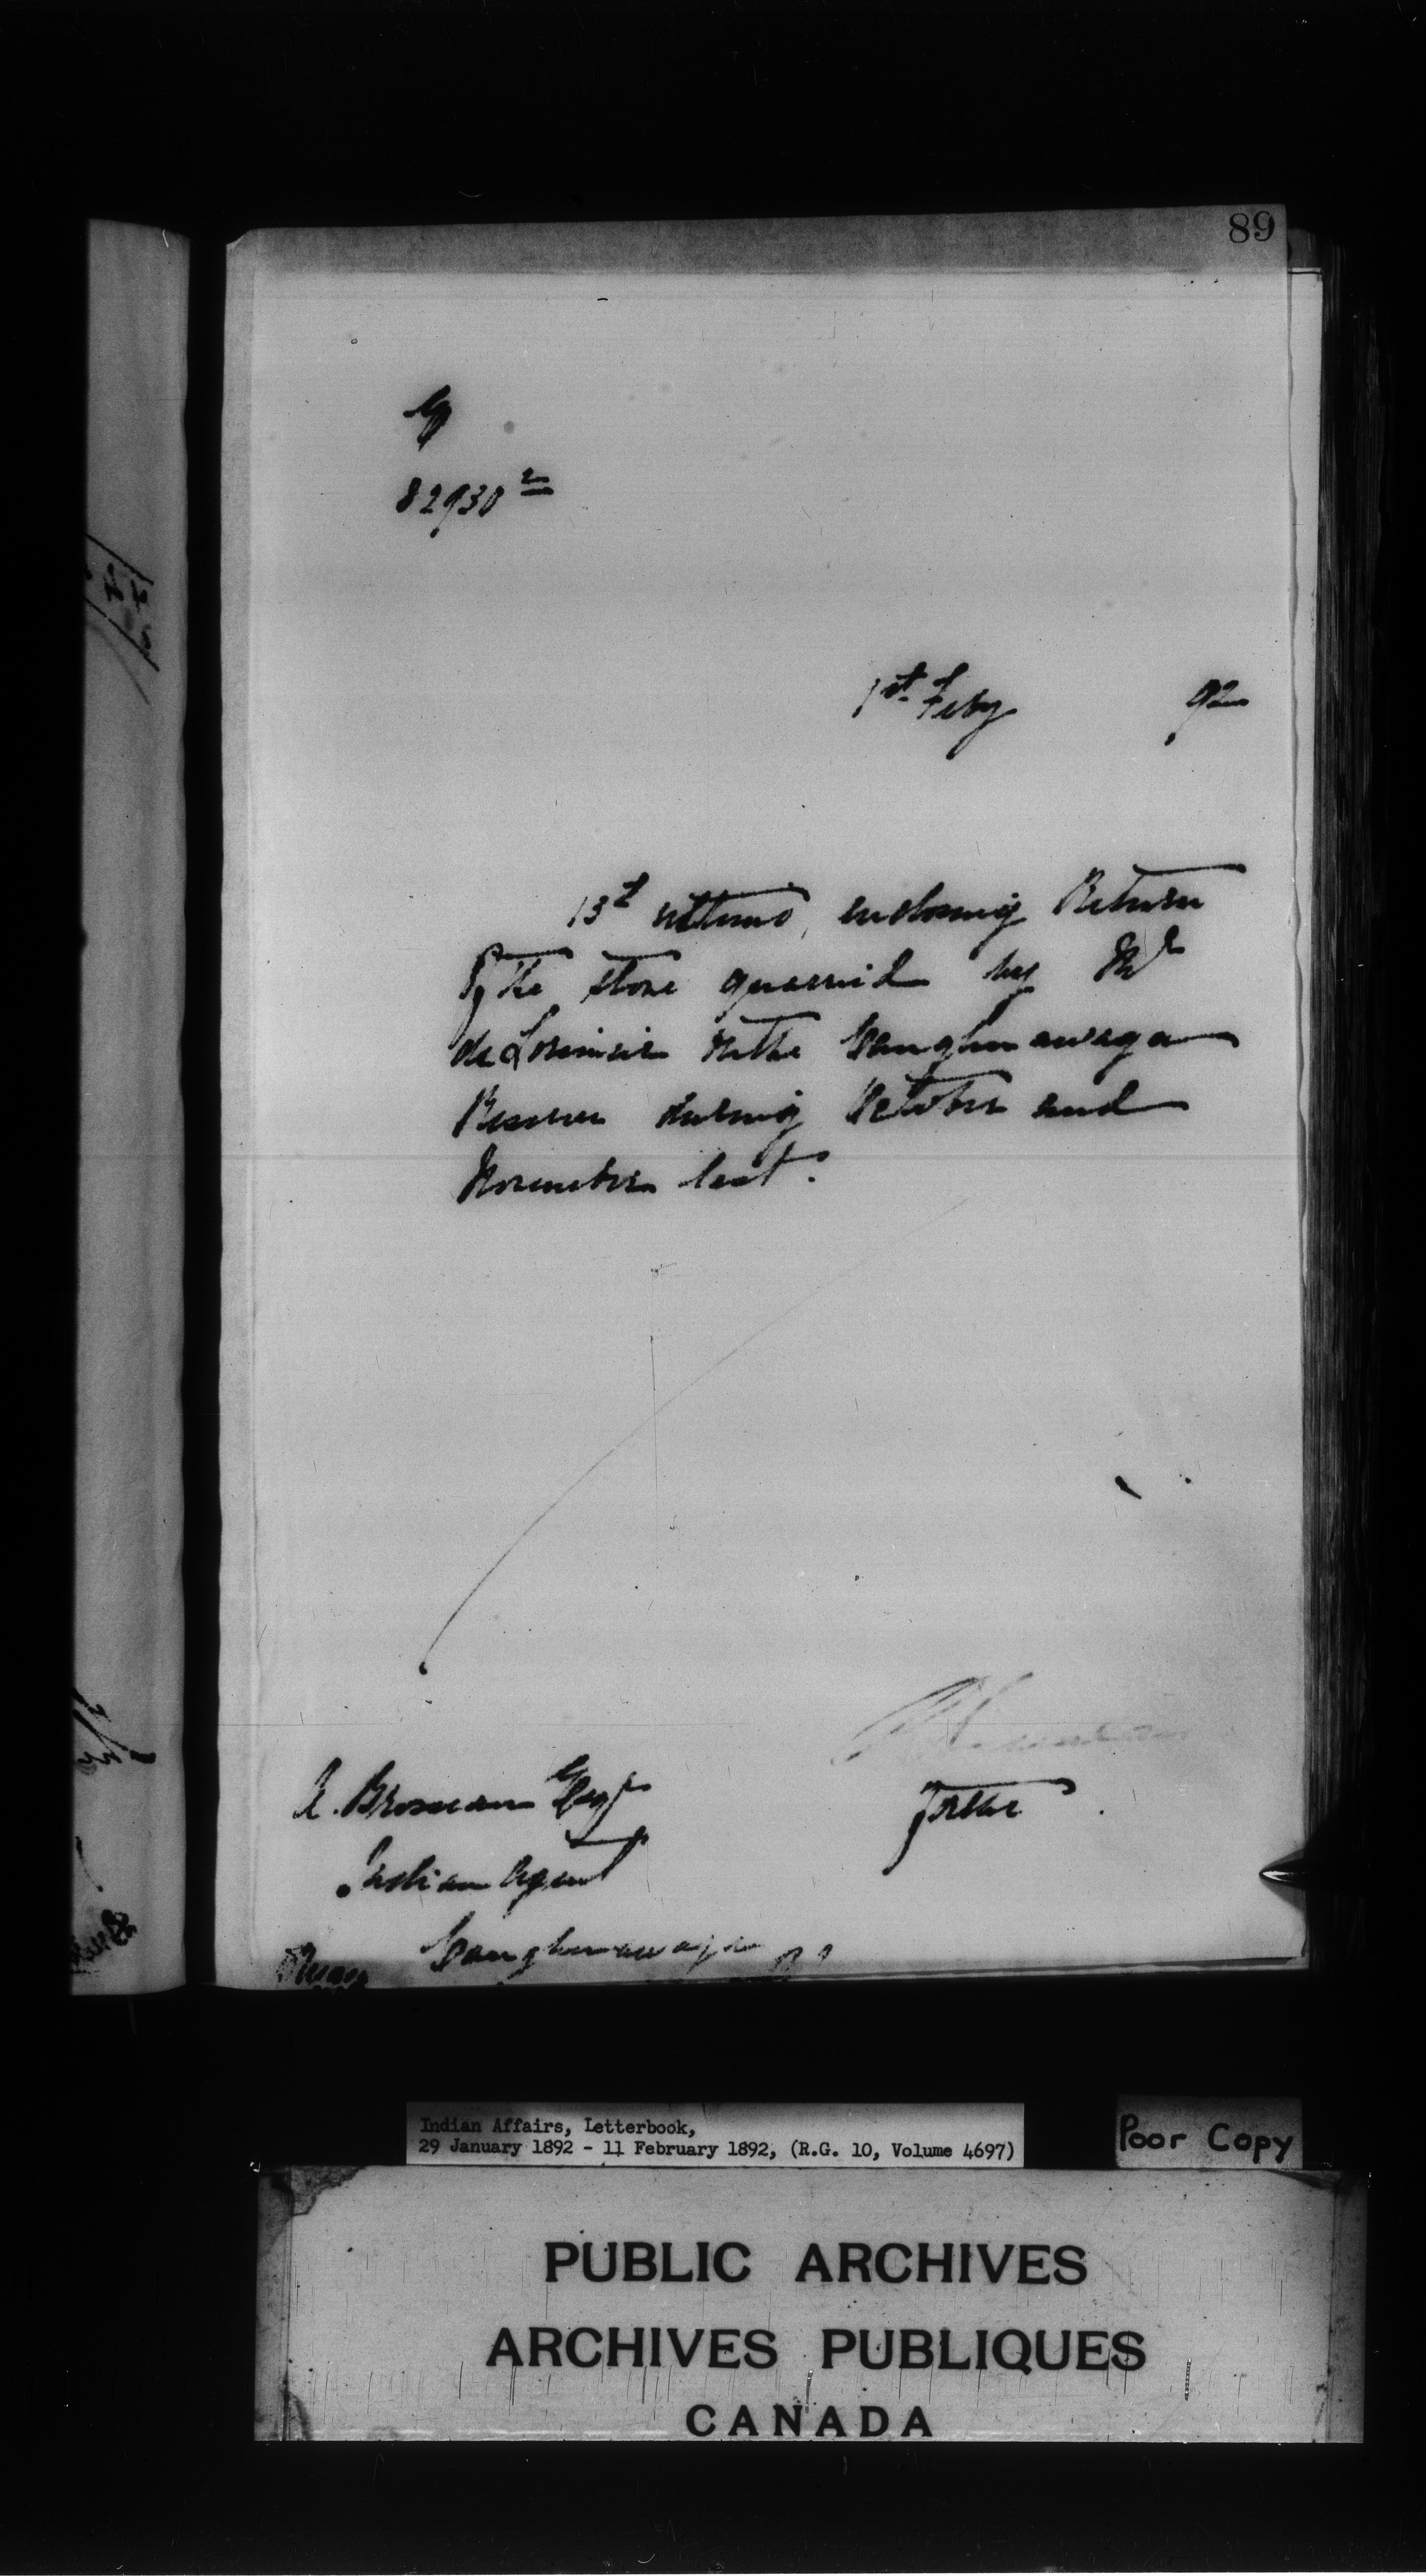 89
82930 2
1st Feby 92
13th ultimo, enclosing Return
of the stone quarried by Mr
de Lorimier on the Caughnawaga
Reserve during October and
November last.
A. Brosseau Esqr
for the
Indian Agent
Caughnawaga
Indian Affairs, Letterbook,
29 January 1892 - 11 February 1892, (R.G. 10, Volume 4697)
Poor Copy
PUBLIC ARCHIVES
ARCHIVES PUBLIQUES
CANADA